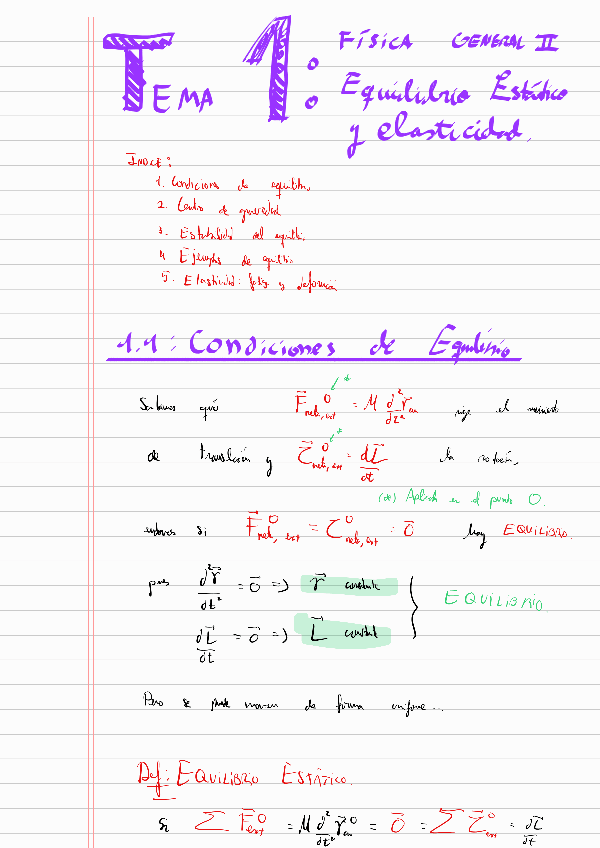 TEMA 1:
FÍSICA GENERAL II
Equilibrio Estático
y elasticidad.
ÍNDICE:
1. Condiciones de equilibrio
2. Centro de gravedad
3. Estabilidad del equilibrio
4. Ejemplos de equilibrio
5. Elasticidad: fuerza y deformación
1.1: Condiciones de Equilibrio
Sabemos que F⃗⁰ neta, ext = M d²r⃗cm/dt² rige el movimiento
de translación y τ⃗⁰ neta, ext = dL⃗/dt la rotación,
(*) Aplicada en el punto O.
entonces si F⃗⁰ neta, ext = τ⃗⁰ neta, ext = 0⃗ hay EQUILIBRIO.
pues d²r⃗/dt² = 0⃗ => r⃗ constante
dL⃗/dt = 0⃗ => L⃗ constante
EQUILIBRIO
Pero se puede mover de forma uniforme...
Def: EQUILIBRIO ESTÁTICO.
Si ∑ F⃗⁰ext = M d²r⃗⁰cm/dt² = 0⃗ = ∑ τ⃗⁰ext = dL⃗/dt